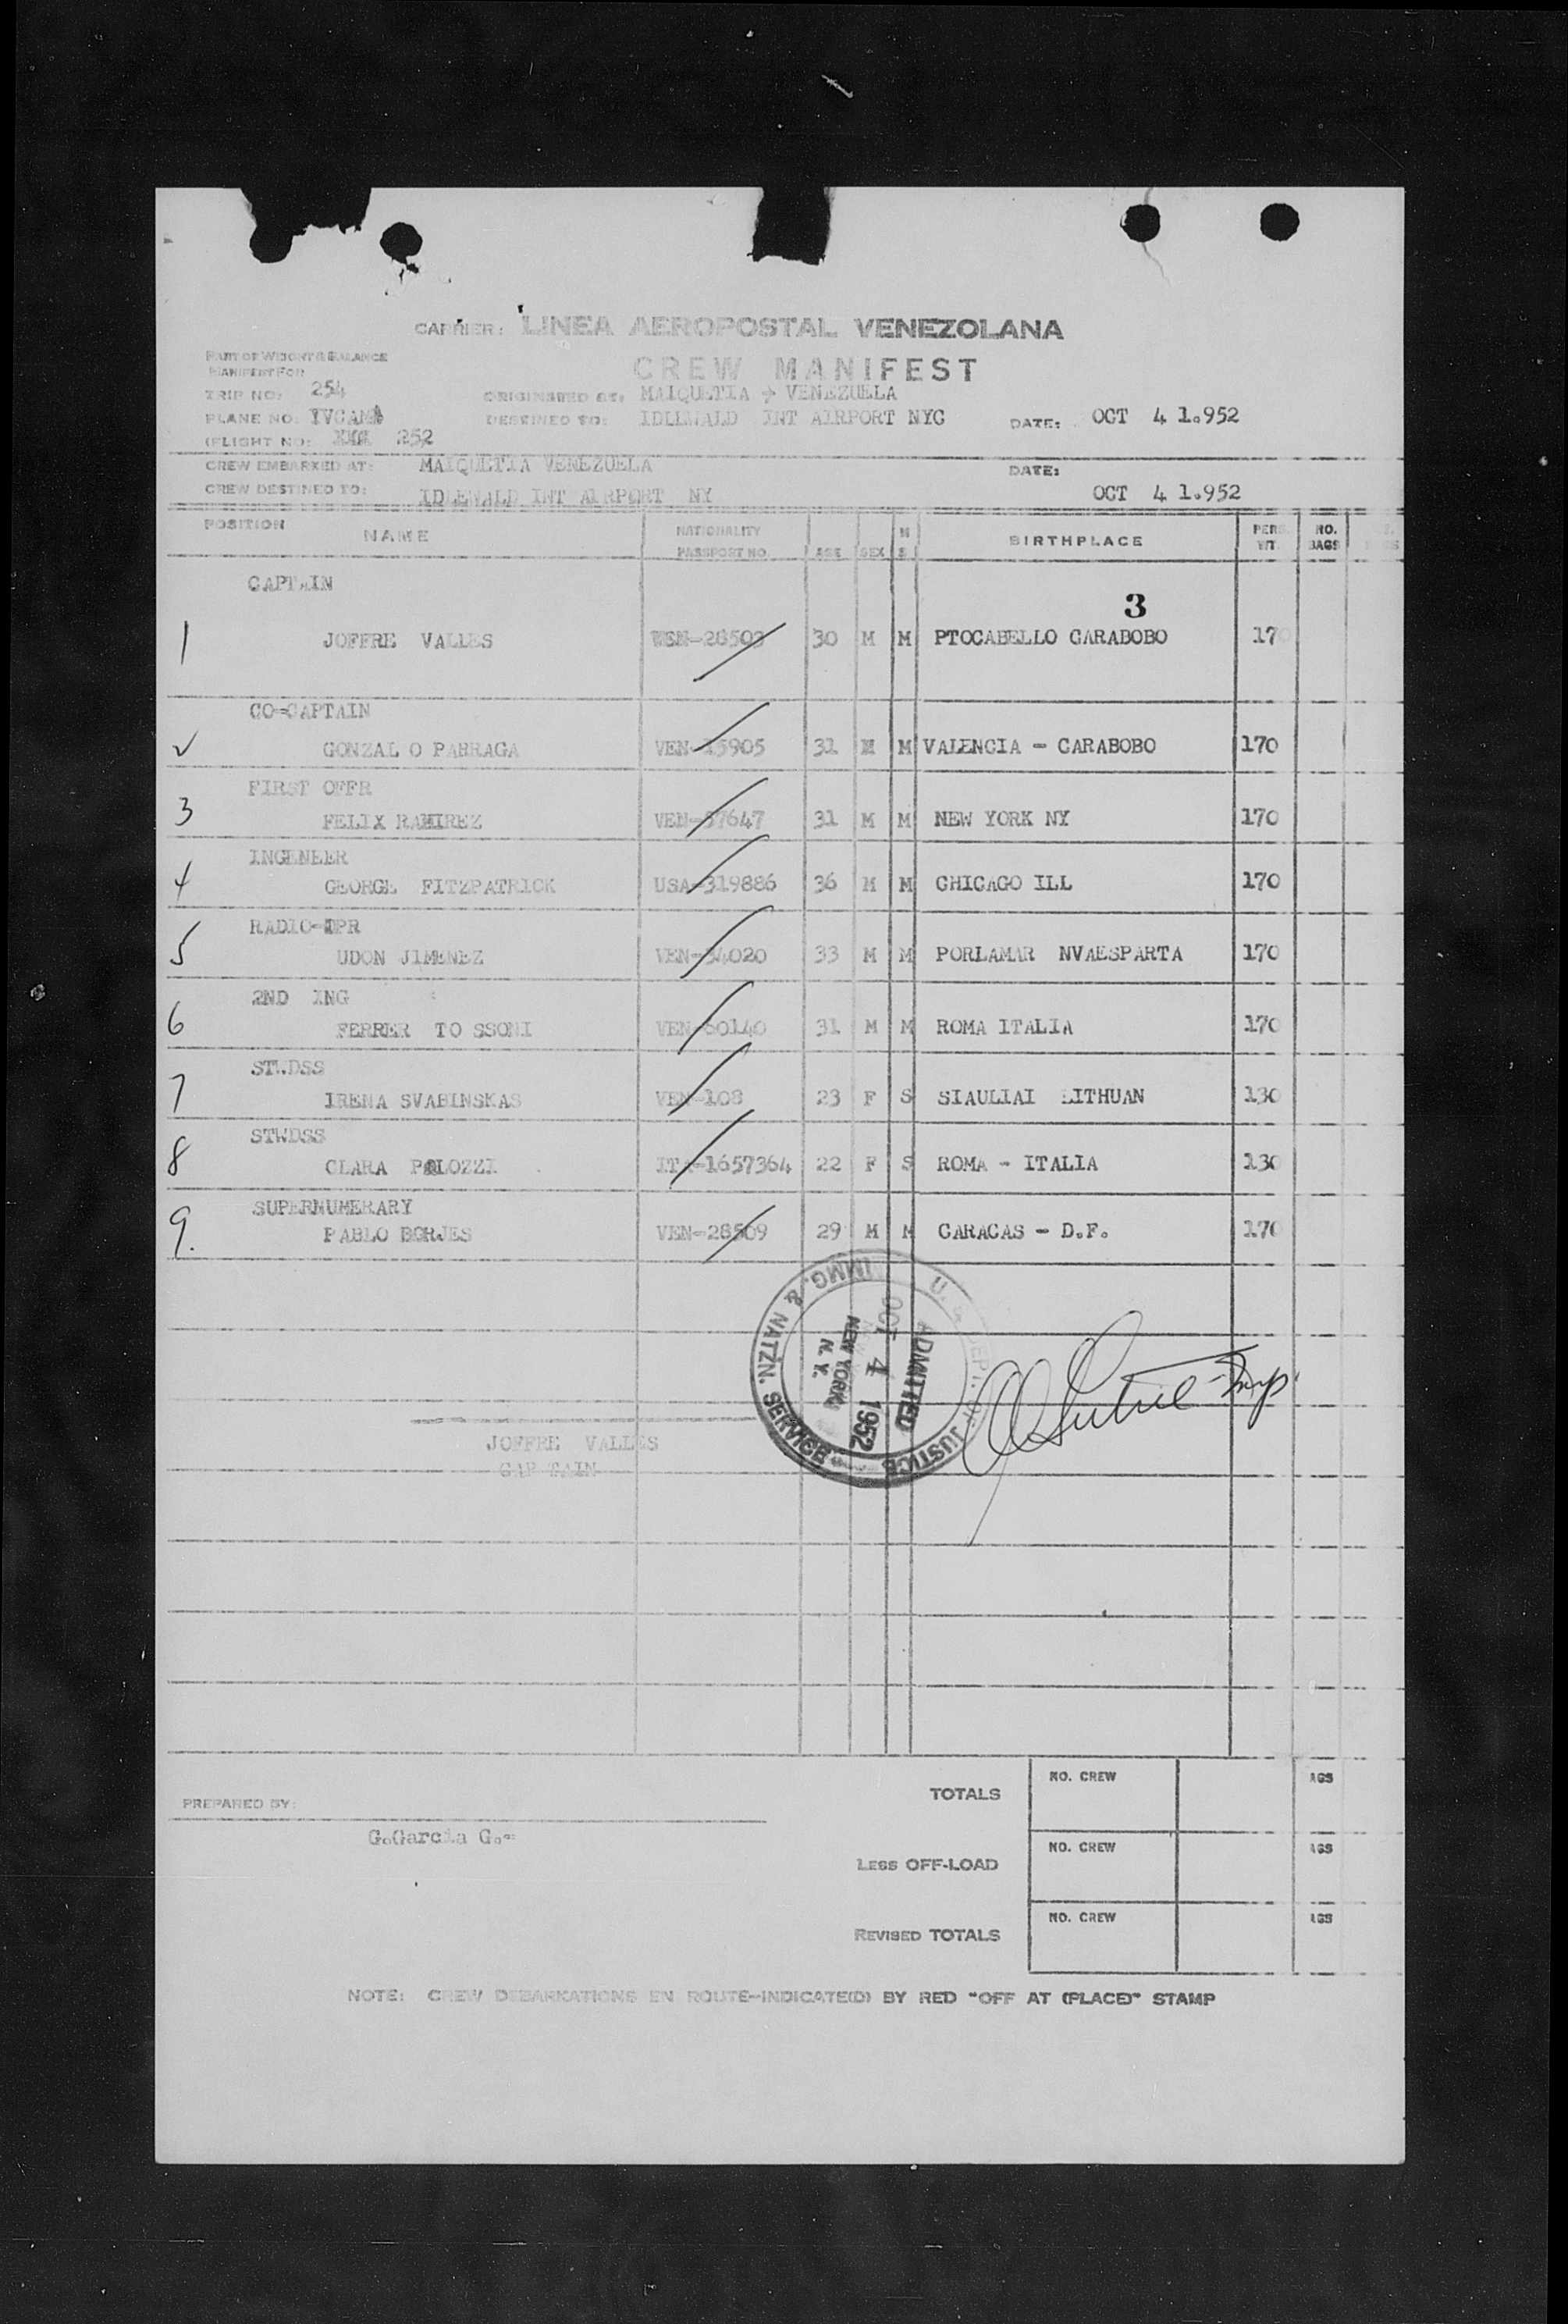 CARRIER: LINEA AEROPOSTAL VENEZOLANA
PART OF WEIGHT & BALANCE
MANIFEST FOR
CREW MANIFEST
TRIP NO: 254 ORIGINATED AT: MAIQUETIA - VENEZUELA
PLANE NO: YVCAMA DESTINED TO: IDLEWALD INT AIRPORT NYC DATE: OCT 4 1.952
(FLIGHT NO: XXX 252
CREW EMBARKED AT: MAIQUETIA VENEZUELA DATE:
CREW DESTINED TO: IDLEWALD INT AIRPORT NY OCT 4 1.952
POSITION NAME NATIONALITY PASSPORT NO. AGE SEX M S BIRTHPLACE PERS. WT. NO. BAGS
CAPTAIN
3
1 JOFFRE VALLES VEN-28503 30 M M PTOCABELLO CARABOBO 170
CO-CAPTAIN
2 GONZAL O PARRAGA VEN-15905 31 M M VALENCIA - CARABOBO 170
FIRST OFFR
3 FELIX RAMIREZ VEN-57647 31 M M NEW YORK NY 170
INGENEER
4 GEORGE FITZPATRICK USA-319886 36 M M CHICAGO ILL 170
RADIO-OPR
5 UDON JIMENEZ VEN-54020 33 M M PORLAMAR NVAESPARTA 170
2ND ING
6 FERRER TO SSONI VEN-60140 31 M M ROMA ITALIA 170
STWDSS
7 IRENA SVABINSKAS VEN-108 23 F S SIAULIAI LITHUAN 130
STWDSS
8 CLARA PALOZZI ITA-1657364 22 F S ROMA - ITALIA 130
SUPERNUMERARY
9. PABLO BORJES VEN-28509 29 M M CARACAS - D.F. 170
U. S. DEPT. OF JUSTICE
IMMG. & NATZN. SERVICE
ADMITTED
OCT 4 1952
NEW YORK
N. Y.
JOFFRE VALLES
CAP TAIN
TOTALS NO. CREW AGS
PREPARED BY:
G.Garcia G.-
LESS OFF-LOAD NO. CREW AGS
REVISED TOTALS NO. CREW AGS
NOTE: CREW DEBARKATIONS EN ROUTE-INDICATE(D) BY RED "OFF AT (PLACE)" STAMP